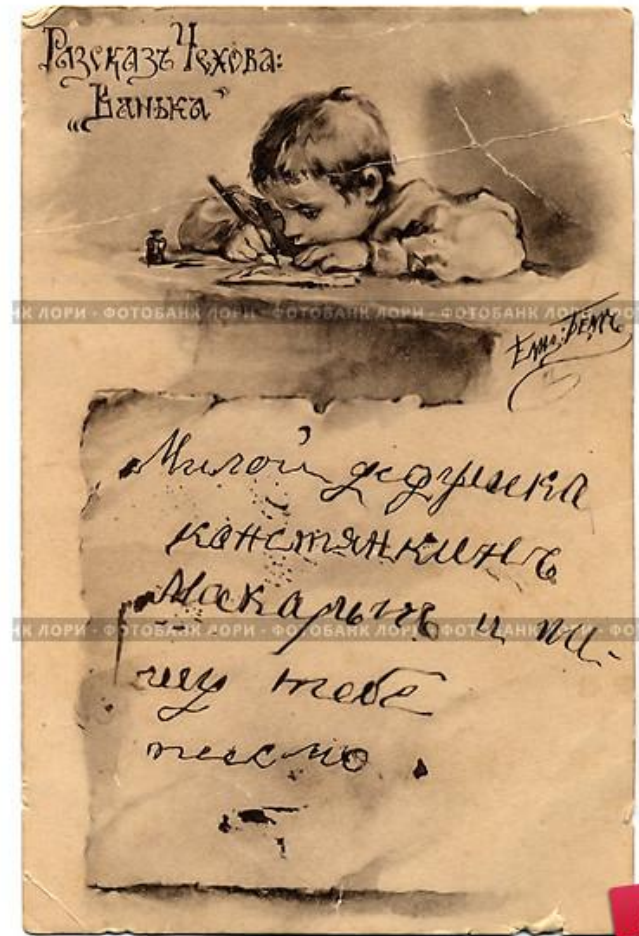 Разсказъ Чехова:
„Ванька”
НК ЛОРИ · ФОТОБАНК ЛОРИ · ФОТОБАНК ЛОРИ · ФОТОБАНК ЛОРИ · ФО
Елис: Бёмъ
Милой дедушка
констянкинъ
Макарычъ и пи-
НК ЛОРИ · ФОТОБАНК ЛОРИ · ФОТОБАНК ЛОРИ · ФОТОБАНК ЛОРИ · ФО
шу тебѣ
писмо.